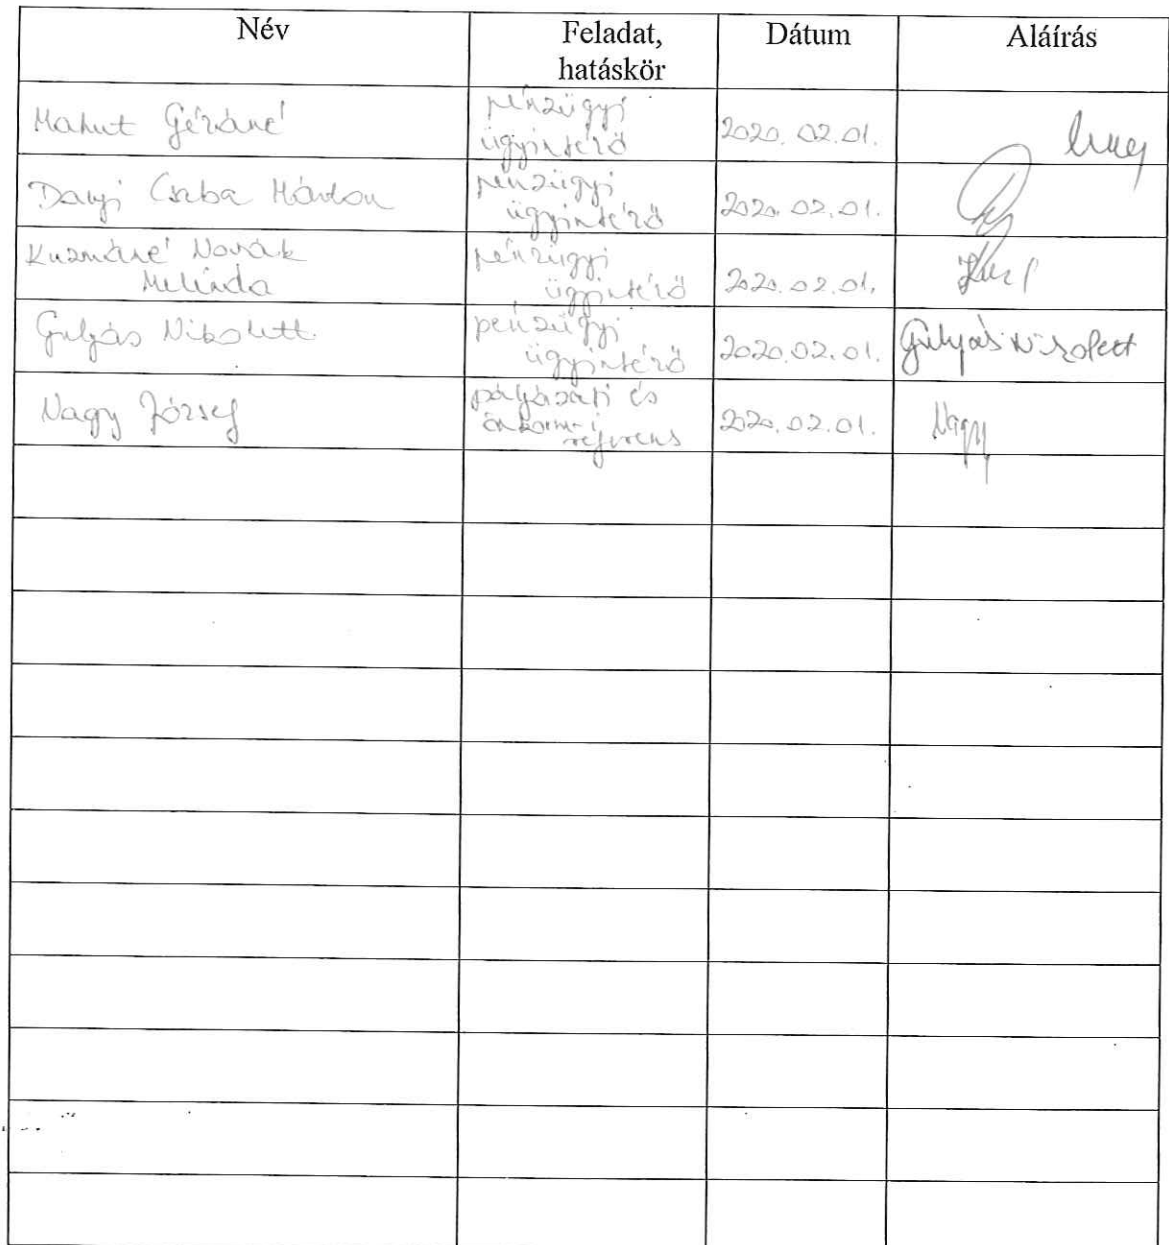 Név
Feladat,
hatáskör
Dátum
Aláírás
Mahut Gézáné
pénzügyi
ügyintéző
2020. 02.01.
Danyi Csaba Márton
pénzügyi
ügyintéző
2020. 02.01.
Kuzmáné Novák
Melinda
pénzügyi
ügyintéző
2020.02.01.
Gulyás Nikolett
pénzügyi
ügyintéző
2020.02.01.
Gulyás Nikolett
Nagy József
pályázati és
önkorm-i
referens
2020.02.01.
Nagy